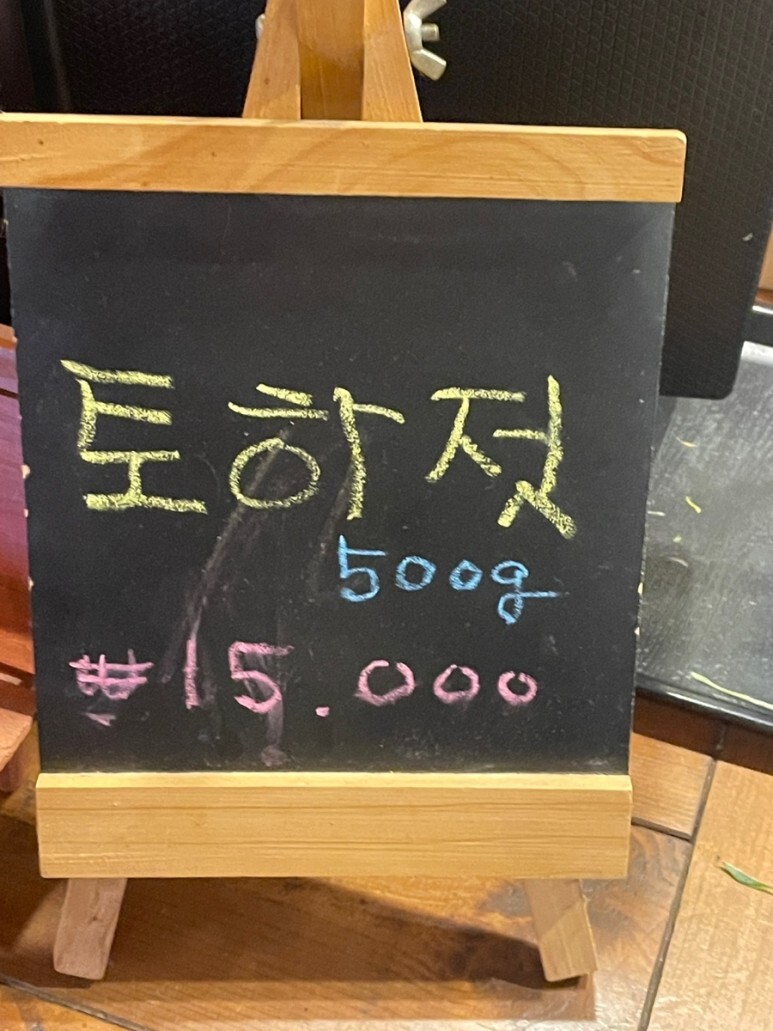 토하젓
500g
₩15.000